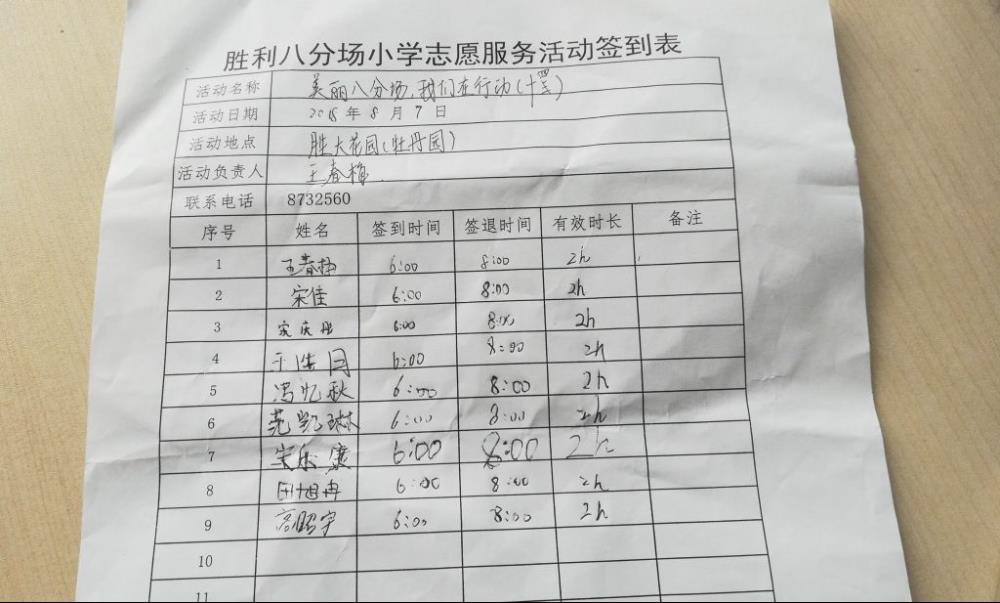 胜利八分场小学志愿服务活动签到表
活动名称 美丽八分场,我们在行动(十四)
活动日期 2018年8月7日
活动地点 胜大花园(牡丹园)
活动负责人 王春梅.
联系电话 8732560
序号 姓名 签到时间 签退时间 有效时长 备注
1 王春梅 6:00 8:00 2h
2 宋佳 6:00 8:00 2h
3 6:00 8:00 2h
4 6:00 8:00 2h
5 冯忆秋 6:00 8:00 2h
6 范凯琳 6:00 8:00 2h
7 6:00 8:00 2h
8 6:00 8:00 2h
9 高昭宇 6:00 8:00 2h
10
11